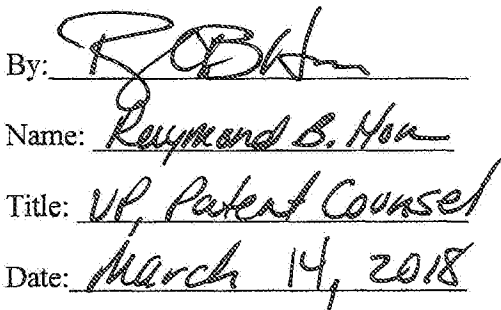 By:
Name: Raymond B. Hom
Title: VP, Patent Counsel
Date: March 14, 2018